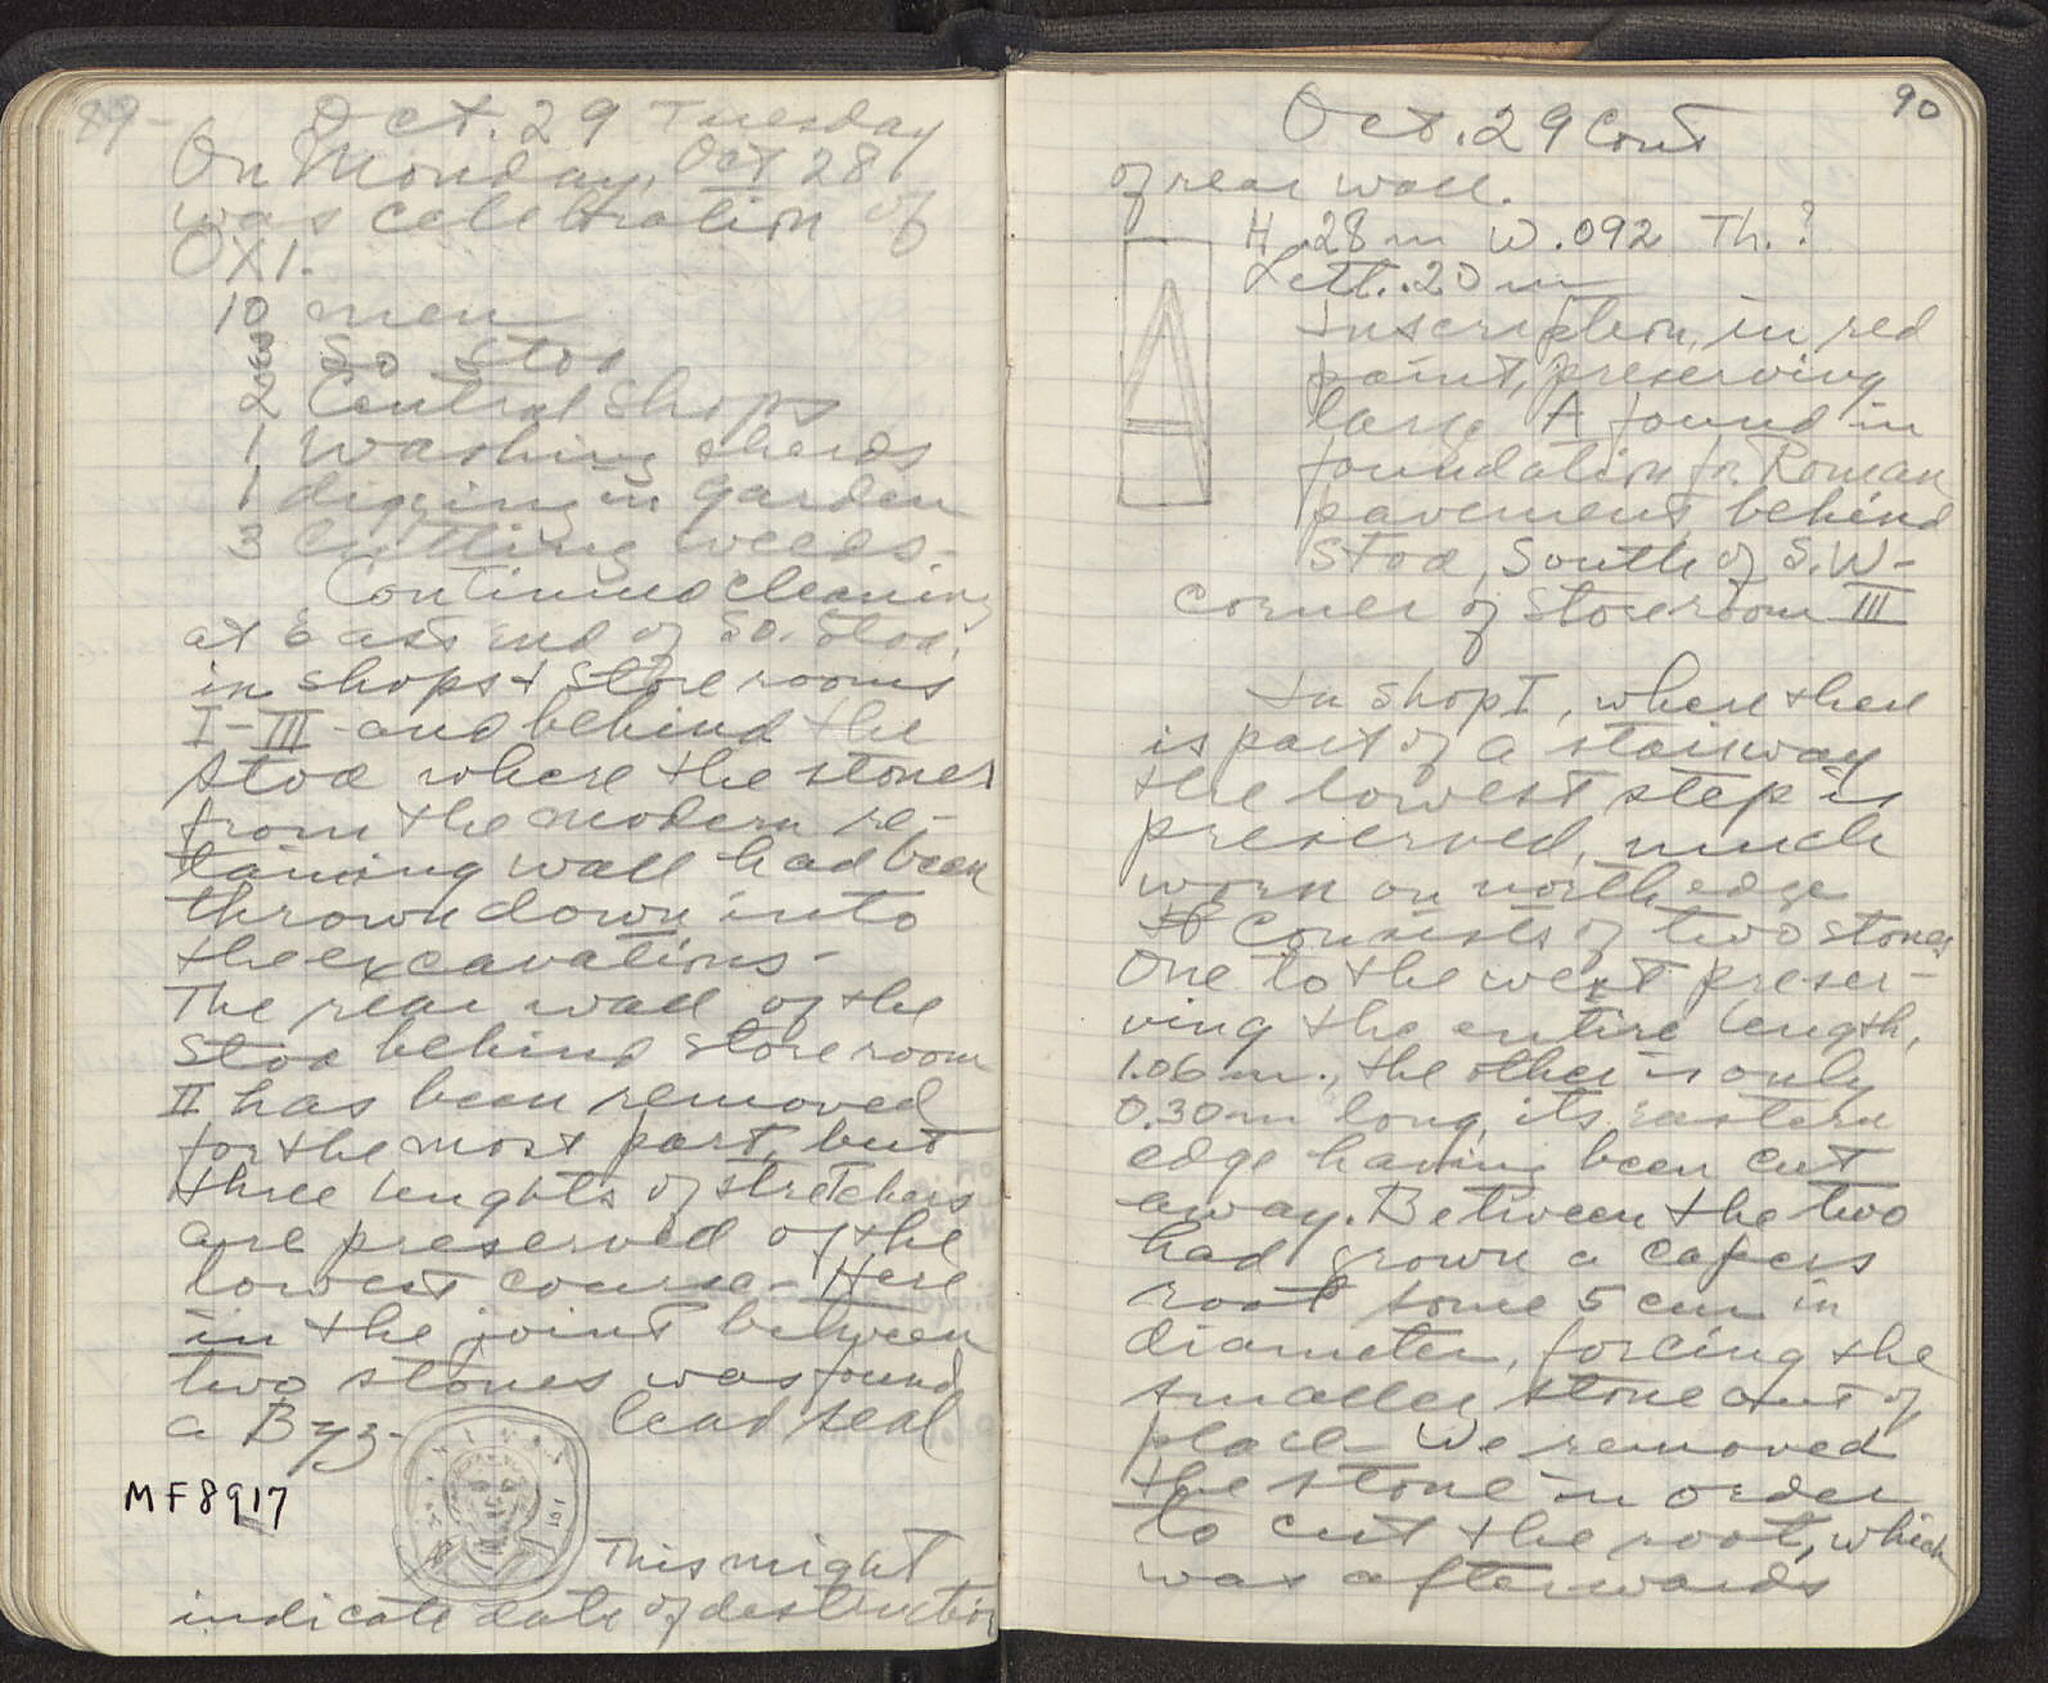 89-
Oct. 29 Tuesday
On Monday, Oct 28
was celebration of
OXI.
10 men
3 So Stoa
2 Central Shops
1 Washing sherds
1 digging in garden
3 Cutting weeds-
Continued cleaning
at East end of So. Stoa,
in shops + Storerooms
I-III and behind the
Stoa where the stones
from the modern re-
taining wall had been
thrown down into
the excavations-
The rear wall of the
Stoa behind Storeroom
II has been removed
for the most part, but
three lenghts of stretchers
are preserved of the
lowest course- Here
in the joint between
two stones was found
a Byz- lead seal
MF 8917
This might
indicate date of destruction
90
Oct. 29 Cont
of rear wall.
H .28 m W .092 Th. ?
Lett. .20 m
A
Inscription, in red
paint, preserving
large A found in
foundation for Roman
pavement behind
Stoa, South of S.W-
Corner of Storeroom III
In Shop I, where there
is part of a stairway
the lowest step is
preserved, much
worn on north edge
It Consists of two stones
One to the west preser-
ving the entire length,
1.06 m., the other is only
0.30m long, its eastern
edge having been cut
away. Between the two
had grown a capers
root some 5 cm in
diameter, forcing the
smaller stone out of
place We removed
the stone in order
to cut the root, which
was afterwards